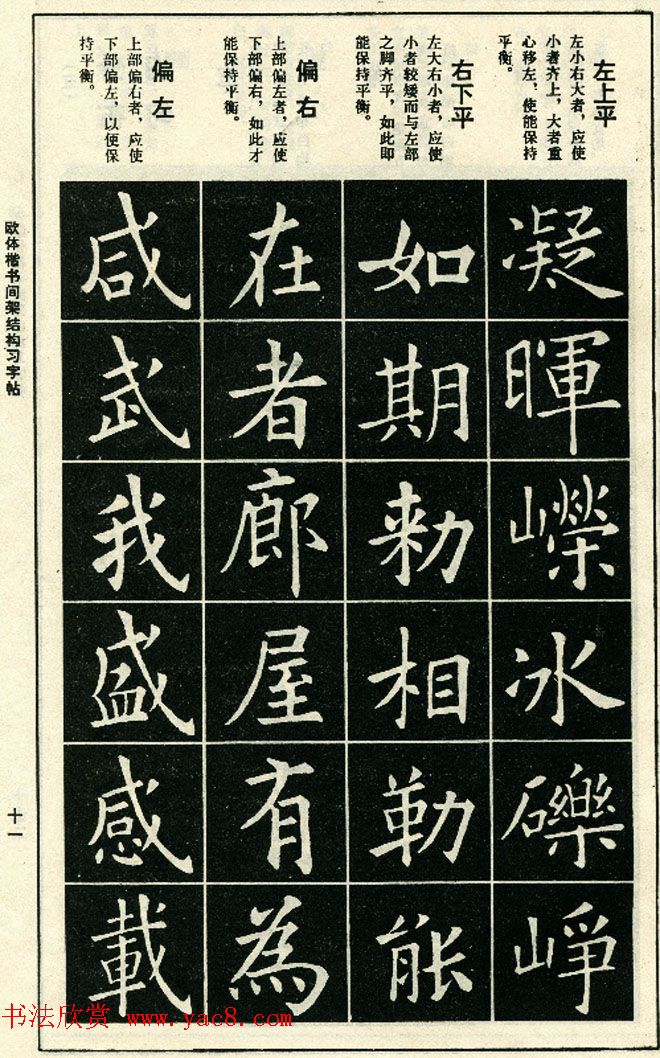 左上平
左小右大者，应使
小者齐上，大者重
心移左，使能保持
平衡。
右下平
左大右小者，应使
小者较矮而与左部
之脚齐平，如此即
能保持平衡。
偏右
上部偏左者，应使
下部偏右，如此才
能保持平衡。
偏左
上部偏右者，应使
下部偏左，以便保
持平衡。
凝暉嶸冰礫崢
如期勑相勒能
在者廊屋有為
咸武我盛感載
欧体楷书间架结构习字帖
十一
书法欣赏 www.yac8.com